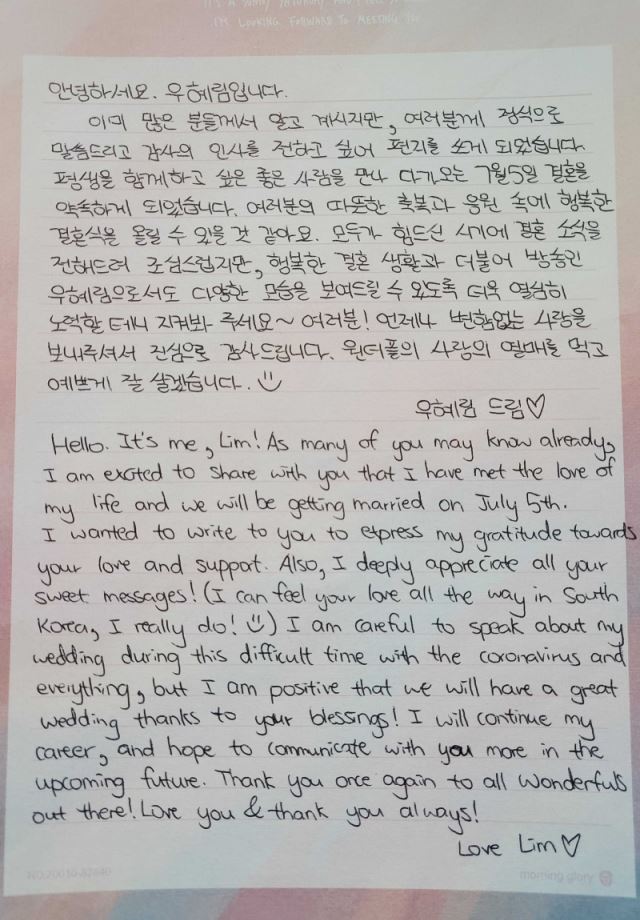 I'M LOOKING FORWARD TO MEETING YOU
안녕하세요. 우혜림입니다.
이미 많은 분들께서 알고 계시지만, 여러분께 정식으로
말씀드리고 감사의 인사를 전하고 싶어 편지를 쓰게 되었습니다.
평생을 함께하고 싶은 좋은 사람을 만나 다가오는 7월5일 결혼을
약속하게 되었습니다. 여러분의 따뜻한 축복과 응원 속에 행복한
결혼식을 올릴 수 있을 것 같아요. 모두가 힘드신 시기에 결혼 소식을
전해드려 조심스럽지만, 행복한 결혼 생활과 더불어 방송인
우혜림으로서도 다양한 모습을 보여드릴 수 있도록 더욱 열심히
노력할 테니 지켜봐 주세요~ 여러분! 언제나 변함없는 사랑을
보내주셔서 진심으로 감사드립니다. 원더풀의 사랑의 열매를 먹고
예쁘게 잘 살겠습니다.
우혜림 드림♡
Hello. It's me, Lim! As many of you may know already,
I am excited to share with you that I have met the love of
my life and we will be getting married on July 5th.
I wanted to write to you to express my gratitude towards
your love and support. Also, I deeply appreciate all your
sweet messages! (I can feel your love all the way in South
Korea, I really do!) I am careful to speak about my
wedding during this difficult time with the coronavirus and
everything, but I am positive that we will have a great
wedding thanks to your blessings! I will continue my
career, and hope to communicate with you more in the
upcoming future. Thank you once again to all Wonderfuls
out there! Love you & thank you always!
Love Lim♡
morning glory